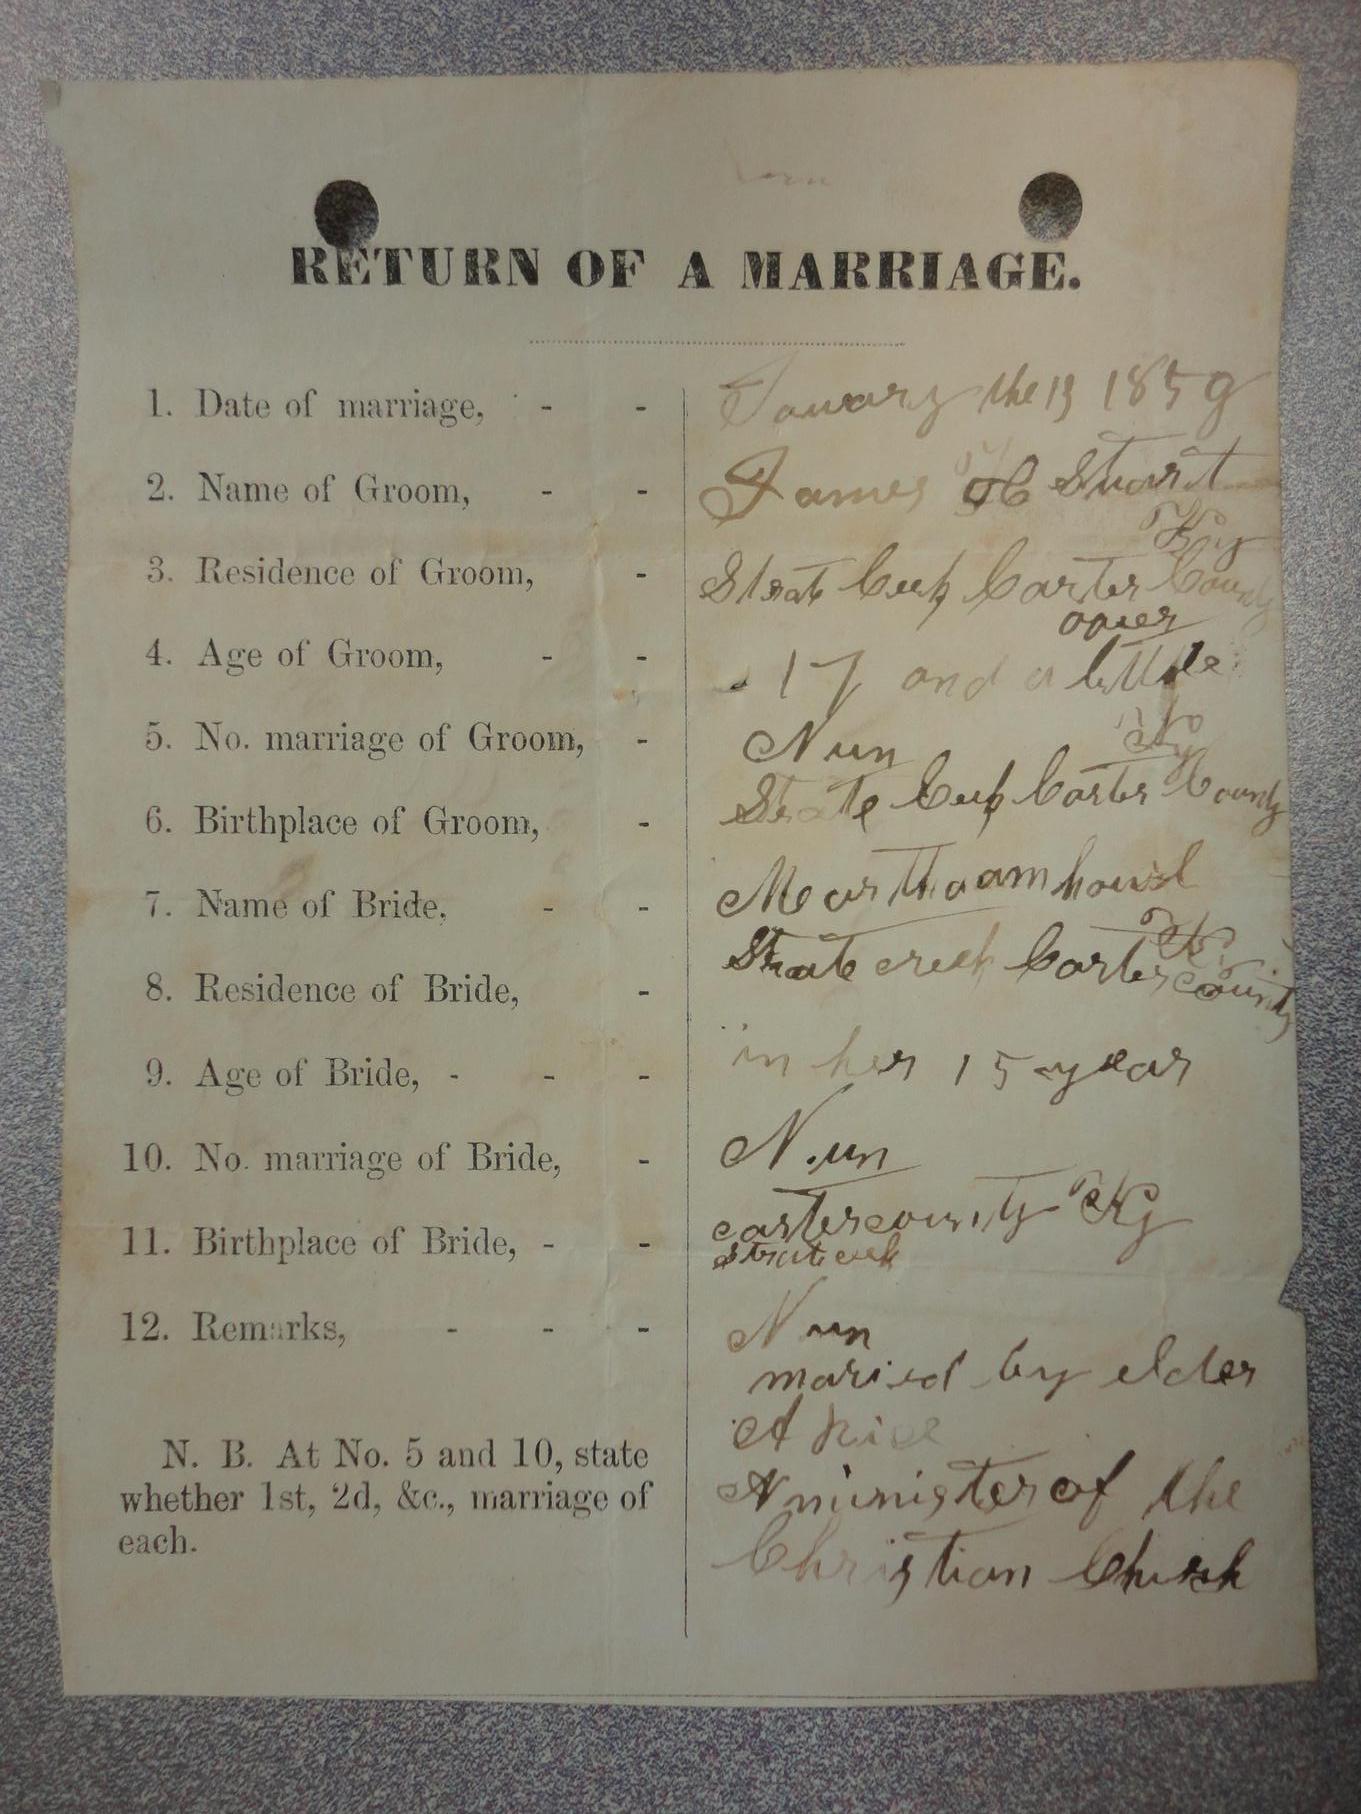 RETURN OF A MARRIAGE.
1. Date of marriage, - - January the 13 1859
2. Name of Groom, - - James H Stuart
Ky
3. Residence of Groom, - Strate Creek Carter County
over
4. Age of Groom, - - 17 and a little
5. No. marriage of Groom, - Nun Ky
6. Birthplace of Groom, - Strate Creek Carter County
7. Name of Bride, - - Marthaam
Ky
8. Residence of Bride, - Strate creek Carter county
9. Age of Bride, - - - in her 15 year
10. No. marriage of Bride, - Nun
11. Birthplace of Bride, - - carter county Ky
Strate creek
12. Remarks, - - - Nun
maried by elder
A Rice
N. B. At No. 5 and 10, state
whether 1st, 2d, &c., marriage of
each.
A minister of the
Christian Church